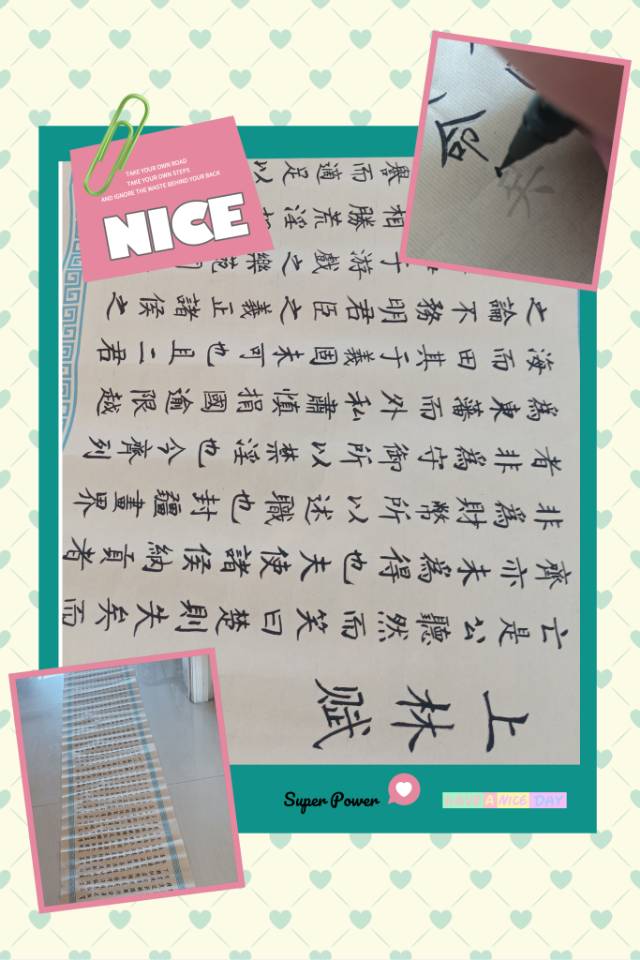 TAKE YOUR OWN ROAD
TAKE YOUR OWN STEPS
AND IGNORE THE WASTE BEHIND YOUR BACK
NICE
上林赋
亡是公聽然而笑曰楚則失矣而
齊亦未為得也夫使諸侯納貢者
非為財幣所以述職也封疆畫界
者非為守御所以禁淫也今齊列
為東藩而外私肅慎捐國逾限越
海而田其于義固未可也且二君
之論不務明君臣之義正諸侯之
于游戲之樂苑
相勝荒淫
譽而適足以
Super Power
HAVE A NICE DAY